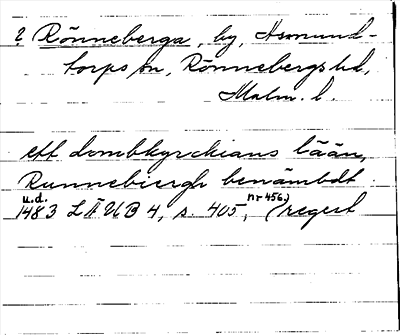 ? Rönneberga, by, Asmund-
torps sn, Rönnebergs hd,
Malm. l.
ett dombkyrckians lään,
Runnebiergh benämbdt
u.d.
1483 LÄUB 4, s. 405, nr 456.) (regest